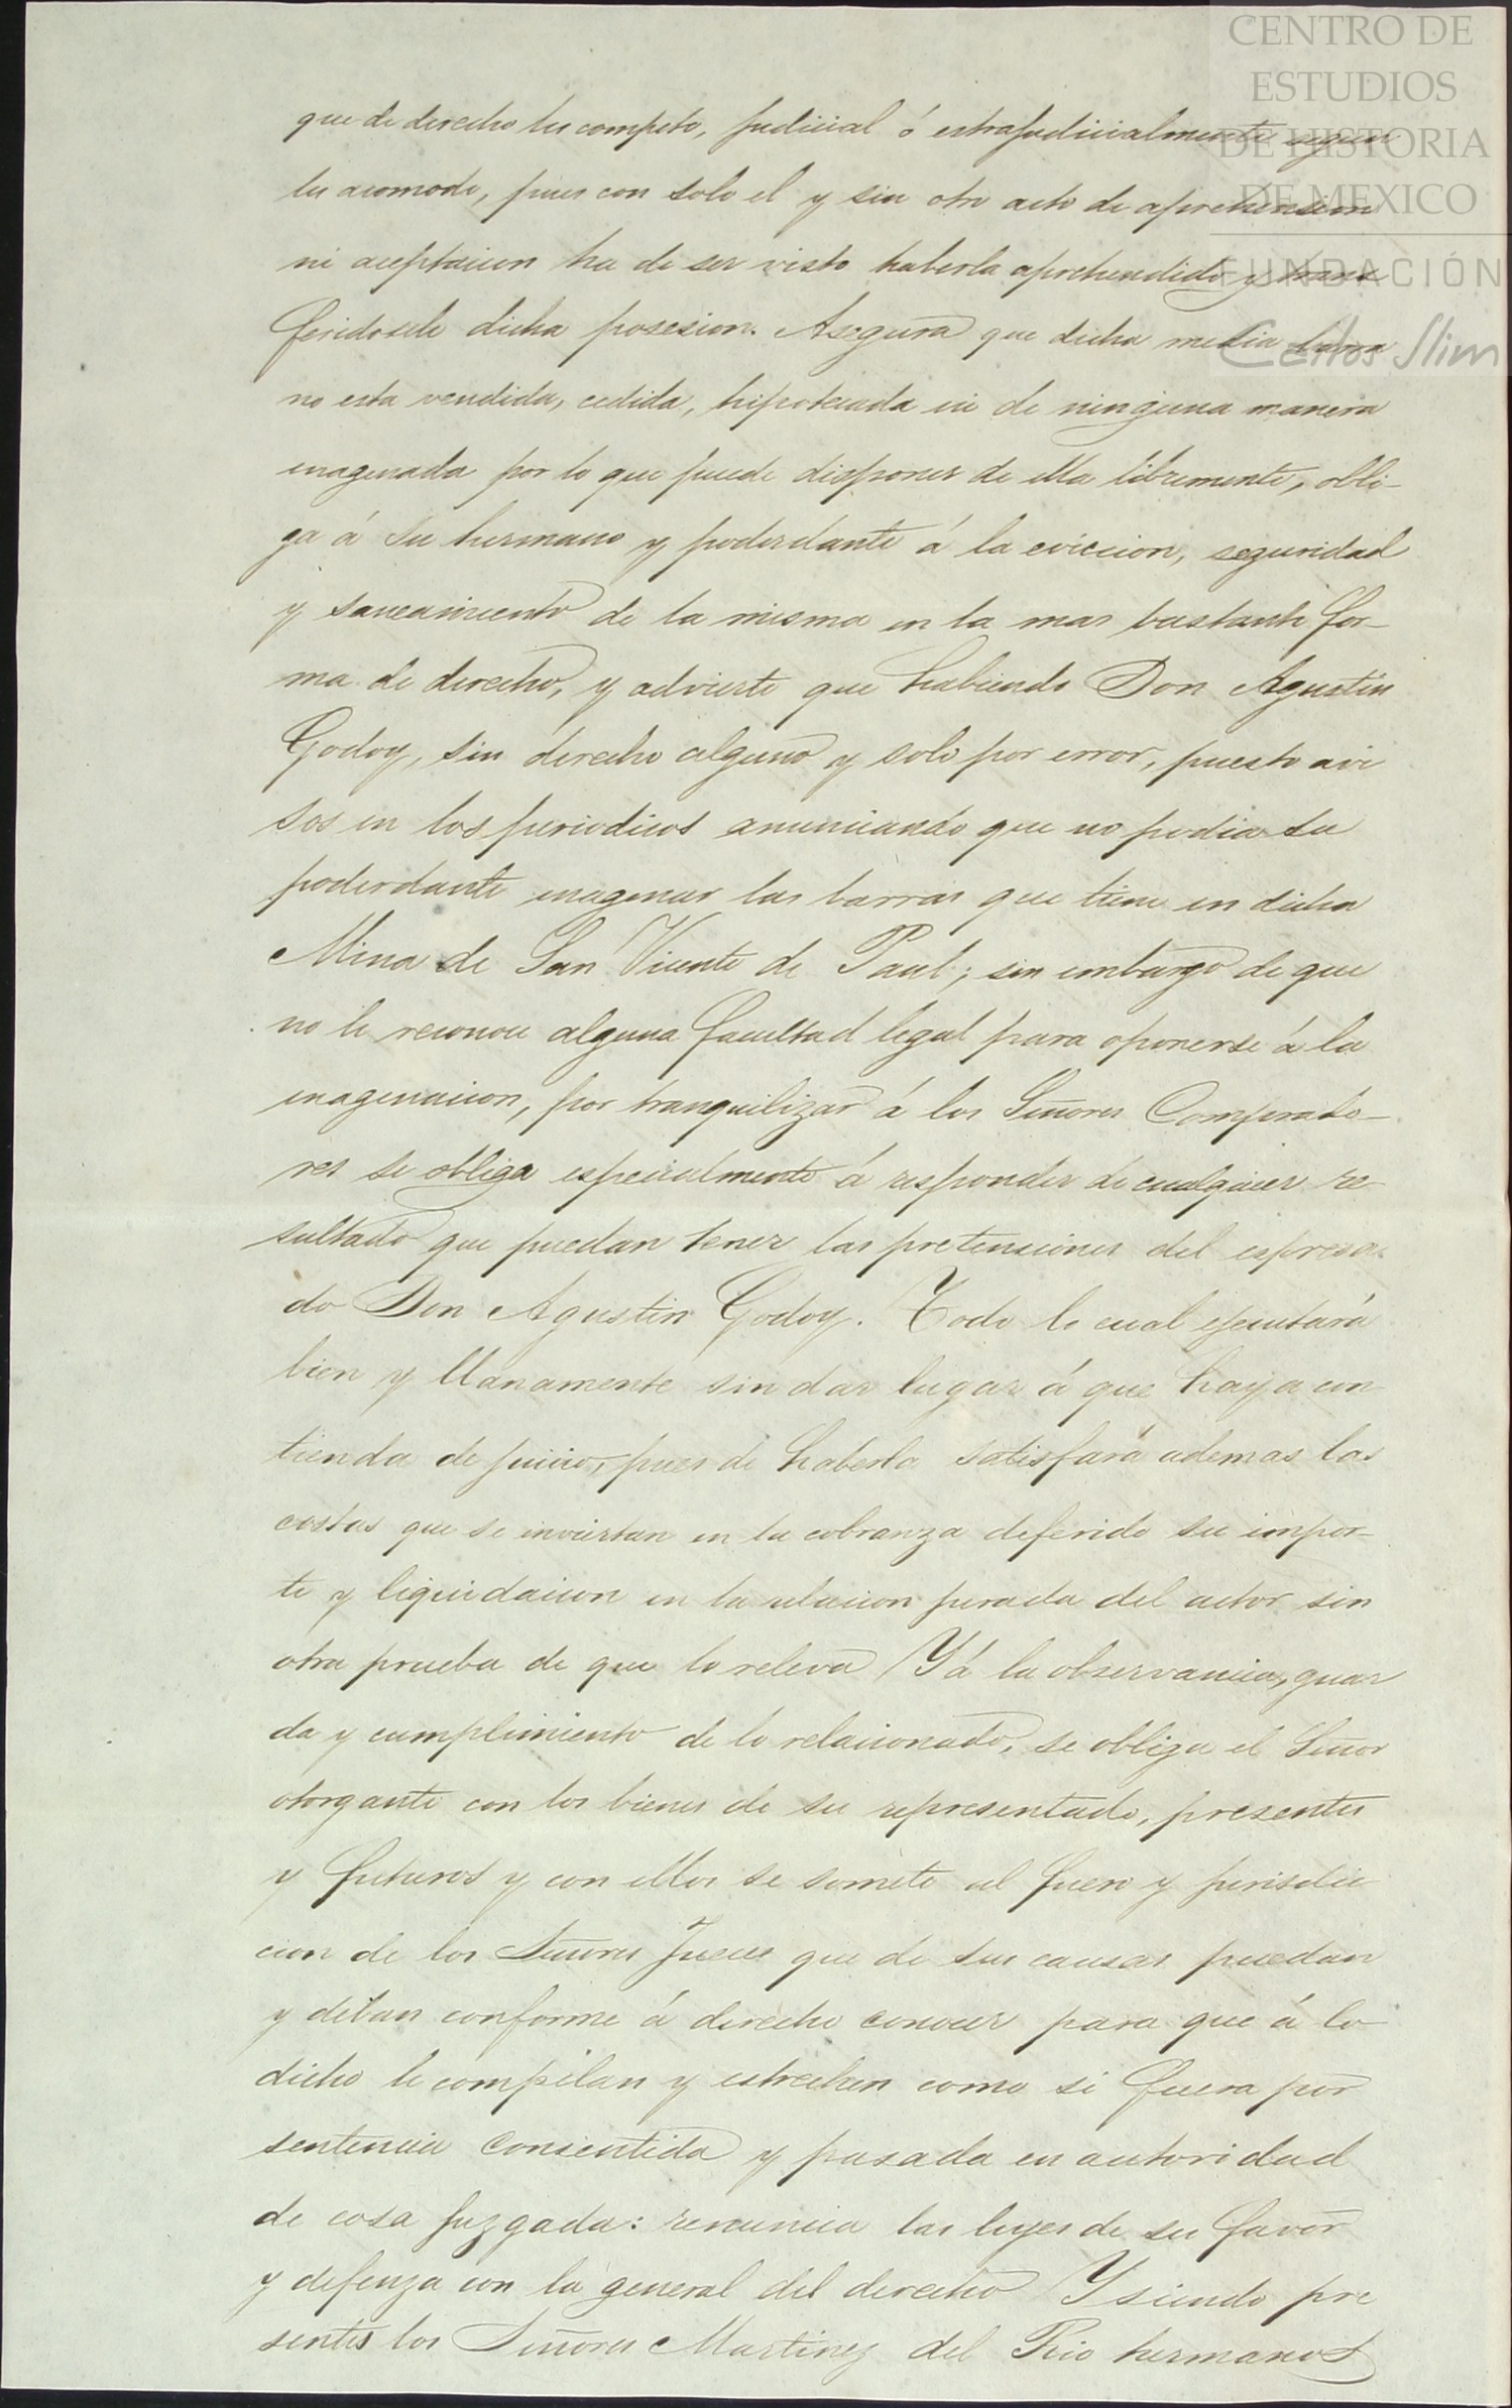 CENTRO DE
ESTUDIOS
DE HISTORIA
DE MEXICO
FUNDACIÓN
Carlos Slim
que de derecho les compete, judicial ó estrajudicialmente segun
les acomode, pues con solo el y sin otro acto de aprehension
ni aceptacion ha de ser visto haberla aprehendido y trans
feridosele dicha posesion. Asegura que dicha media barra
no esta vendida, cedida, hipotecada ni de ninguna manera
enagenada por lo que puede disponer de ella libremente, obli-
ga á su hermano y poderdante á la eviccion, seguridad
y saneamiento de la misma en la mas bastante for-
ma de derecho, y advierte que habiendo Don Agustin
Godoy, sin derecho alguno y solo por error, puesto avi
sos en los periodicos anunciando que no podia su
poderdante enagenar las barras que tiene en dicha
Mina de San Vicente de Paul; sin embargo de que
no le reconoce alguna facultad legal para oponerse á la
enagenacion, por tranquilizar á los Señores Comprado-
res se obliga especialmente á responder de cualquier re
sultado que puedan tener las pretenciones del espresa-
do Don Agustin Godoy. Todo lo cual ejecutará
bien y llanamente sin dar lugar á que haya con
tienda de juicio, pues de haberla satisfará ademas las
costas que se inviertan en la cobranza deferido su impor-
te y liquidacion en la relacion jurada del actor sin
otra prueba de que lo releva Y á la observancia, guar
da y cumplimiento de lo relacionado, se obliga el Señor
otorgante con los bienes de su representado, presentes
y futuros y con ellos se somete al fuero y jurisdic
cion de los Señores Jueces que de sus causas puedan
y deban conforme á derecho conocer para que á lo
dicho le compelan y estrechen como si fuera por
sentencia consentida y pasada en autoridad
de cosa juzgada: renuncia las leyes de su favor
y defenza con la general del derecho Y siendo pre
sentes los Señores Martinez del Rio hermanos